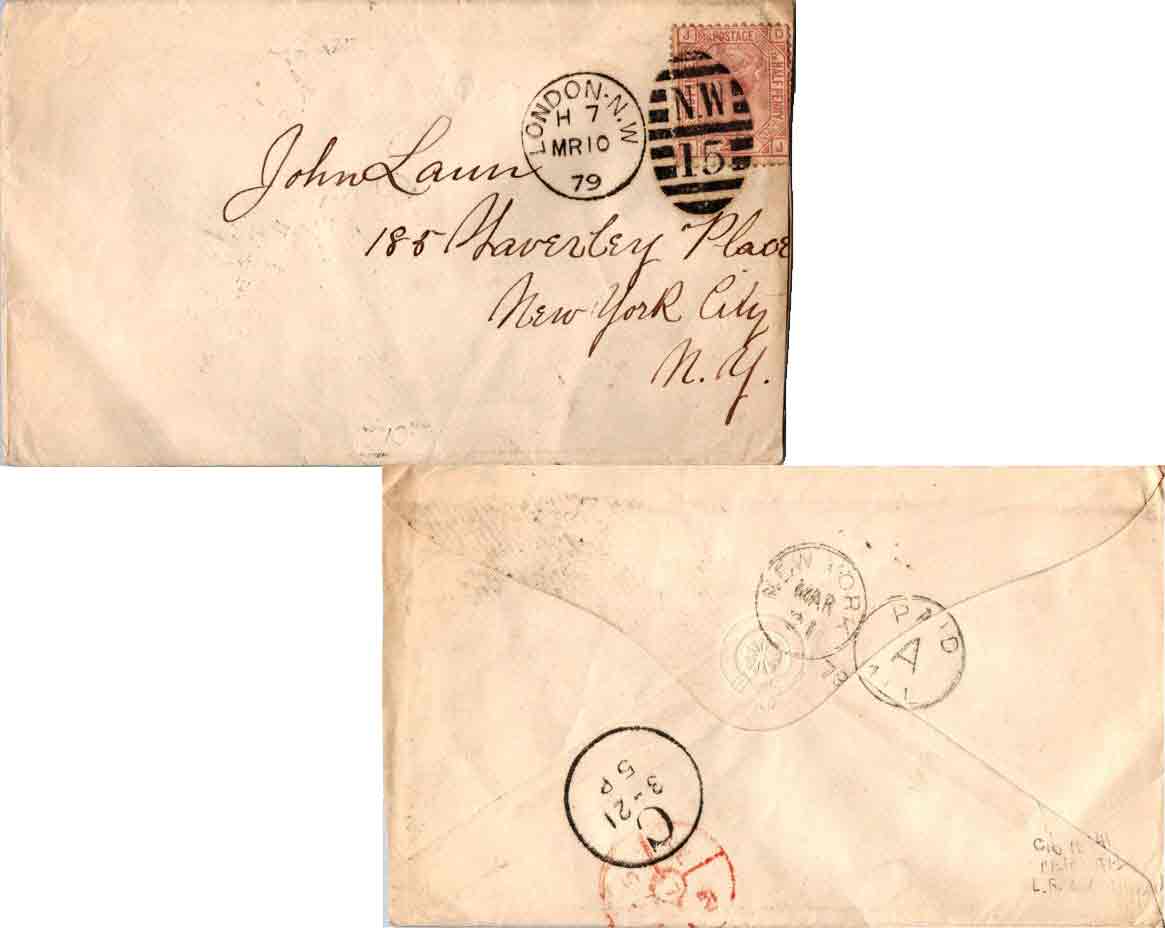 J POSTAGE D
HALF PENNY
J
LONDON-N.W
H 7
MR10
79
N.W
15
John Laun
185 Waverley Place
New York City
N. Y.
NEW YORK
MAR
21
PAID
A
ALL
C
3-21
5 P
L.R.